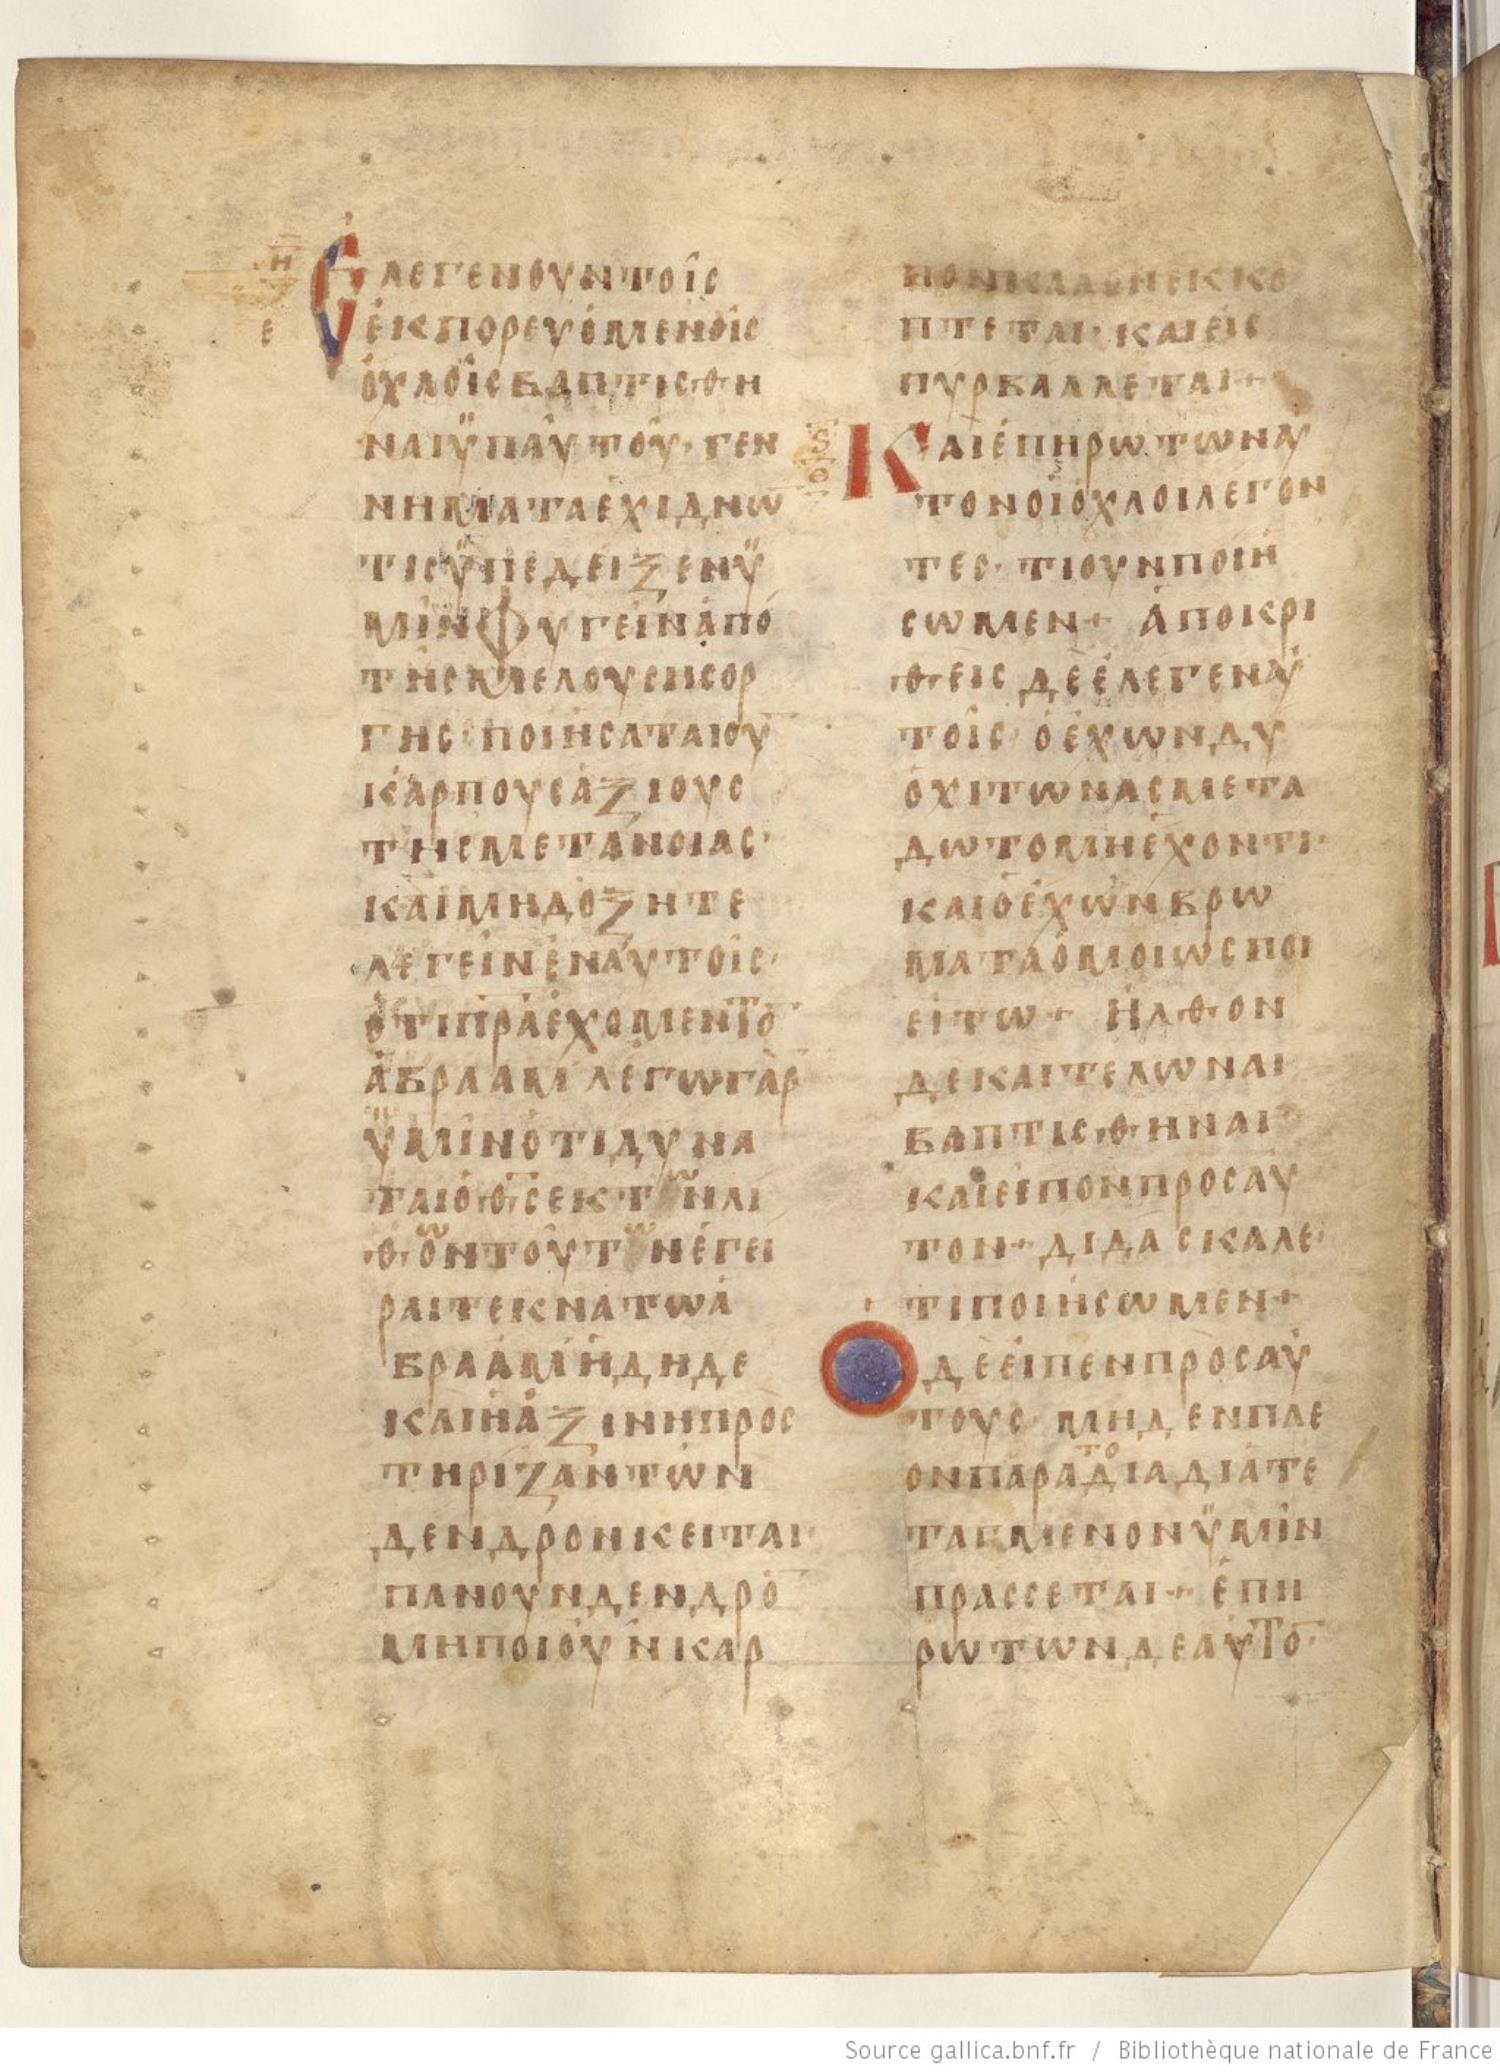 Η
ΕΛΕΓΕΝΟΥΝΤΟΙ̑Ϲ
Ε
ἘΚΠΟΡΕΥΌΜΕΝΟΙϹ
ὌΧΛΟΙϹΒΑΠΤΙϹΘΗ
ΝΑΙΫΠΑΥΤΟΥ· ΓΕΝ
ΝΗΜΑΤΑΕΧΙΔΝΩ
ΤΙϹΫΠΕΔΕΙΞΕΝΫ
ΜΙΝΦΥΓΕΙΝΑΠΟ
ΤΗϹΜΕΛΟΥϹΗϹΟΡ
ΓΗϹ ΠΟΙΗϹΑΤΑΙΟΥ̅
ΚΑΡΠΟΥϹΑΞΙΟΥϹ
ΤΗϹΜΕΤΑΝΟΙΑϹ·
ΚΑΙΜΗΔΟΞΗΤΕ
ΛΕΓΕΙΝΕΝΑΥΤΟΙϹ·
ΟΤΙΠ̅Ρ̅Α̅ΕΧΟΜΕΝΤΟ̅
ΑΒΡΑΑΜ ΛΕΓΩΓΑΡ
ΫΜΙΝΟΤΙΔΥΝΑ
ΤΑΙΟΘ̅Ϲ̅ΕΚΤΩΝΛΙ
ΘΩΝΤΟΥΤΩΝΕΓΕΙ
ΡΑΙΤΕΚΝΑΤΩΑ
ΒΡΑΑΜ ΗΔΗΔΕ
ΚΑΙΗΑΞΙΝΗΠΡΟϹ
ΤΗΡΙΖΑΝΤΩΝ
ΔΕΝΔΡΟΝΚΕΙΤΑΙ·
ΠΑΝΟΥΝΔΕΝΔΡΟ̅
ΜΗΠΟΙΟΥΝΚΑΡ
ΠΟΝΚΑΛΟΝΕΚΚΟ
ΠΤΕΤΑΙ· ΚΑΙΕΙϹ
ΠΥΡΒΑΛΛΕΤΑΙ+
ΚΑΙΕΠΗΡΩΤΩΝΑΥ
ΤΟΝΟΙΟΧΛΟΙΛΕΓΟΝ
ΤΕϹ· ΤΙΟΥΝΠΟΙΗ
ϹΩΜΕΝ+ ΑΠΟΚΡΙ
ΘΕΙϹΔΕΕΛΕΓΕΝΑΥ
ΤΟΙϹ ΟΕΧΩΝΔΥ
ΟΧΙΤΩΝΑϹΜΕΤΑ
ΔΩΤΟΜΗΕΧΟΝΤΙ·
ΚΑΙΟΕΧΩΝΒΡΩ
ΜΑΤΑΟΜΟΙΩϹΠΟΙ
ΕΙΤΩ+ ΗΛΘΟΝ
ΔΕΚΑΙΤΕΛΩΝΑΙ
ΒΑΠΤΙϹΘΗΝΑΙ
ΚΑΙΕΙΠΟΝΠΡΟϹΑΥ
ΤΟΝ+ ΔΙΔΑϹΚΑΛΕ·
ΤΙΠΟΙΗϹΩΜΕΝ+
ΟΔΕΕΙΠΕΝΠΡΟϹΑΥ
ΤΟΥϹ· ΜΗΔΕΝΠΛΕ
ΤΟ
ΟΝΠΑΡΑΔΙΑΔΙΑΤΕ
ΤΑΓΜΕΝΟΝΫΜΙΝ
ΠΡΑϹϹΕΤΑΙ+ ΕΠΗ
ΡΩΤΩΝΔΕΑΥΤΟ̅·
Source gallica.bnf.fr / Bibliothèque nationale de France